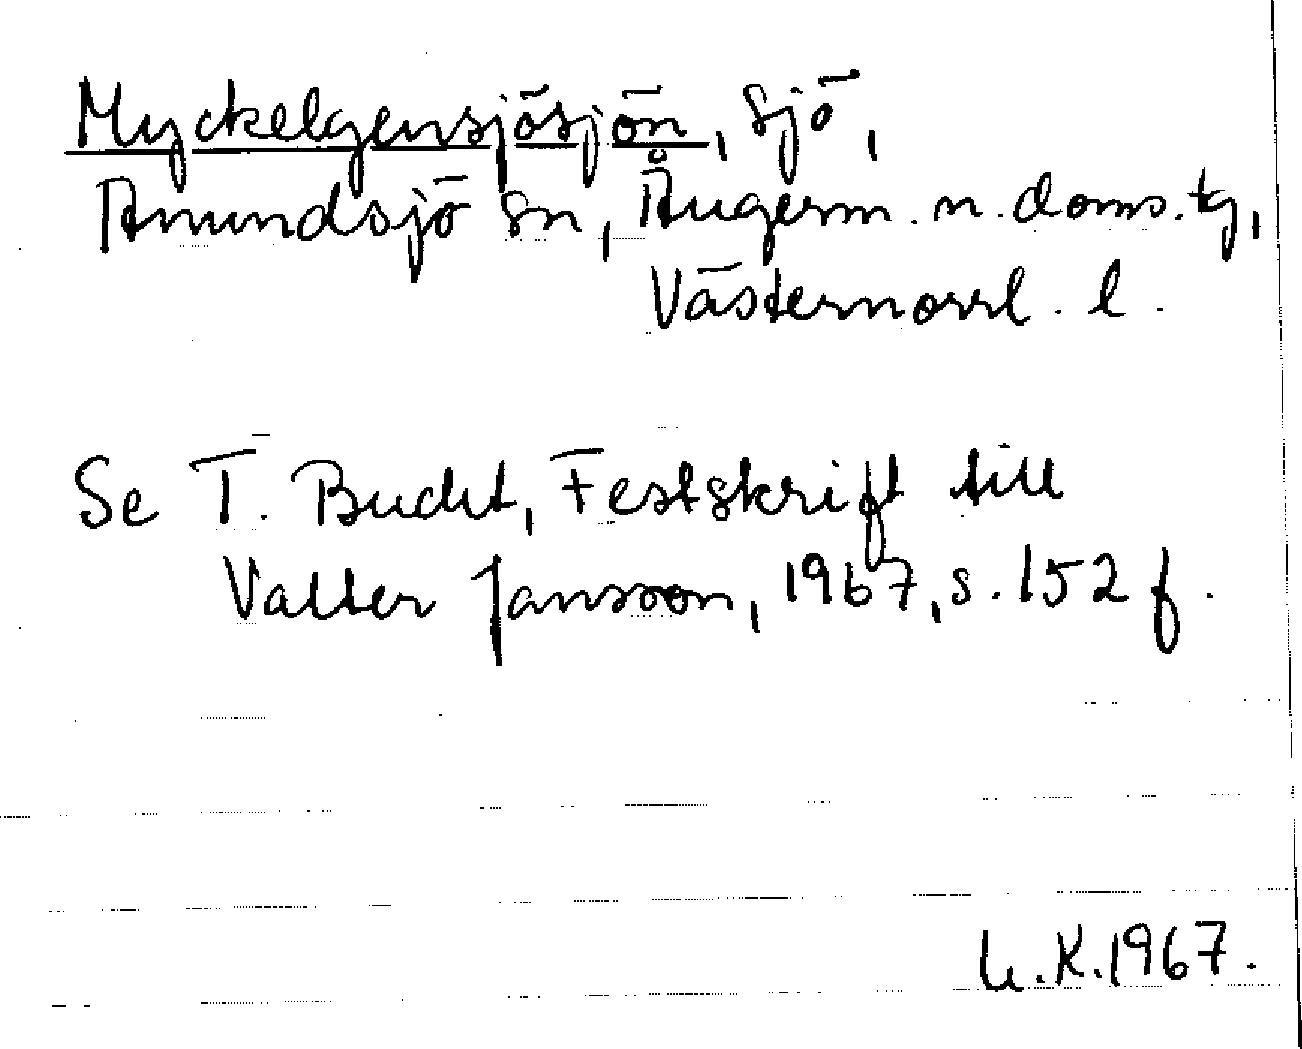 Myckelgensjösjön, sjö,
Anundsjö sn, Ångerm. n. doms. tg,
Västernorrl. l.
Se T. Bucht, Festskrift till
Valter Jansson, 1967, s. 152 f.
U.K.1967.